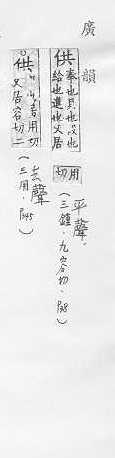 廣韻
供奉也具也設也
給也進也又居
用切
平聲.
(三鍾.九容切.P38)
供 居用切
又居容切二
去聲
(三用.P345)